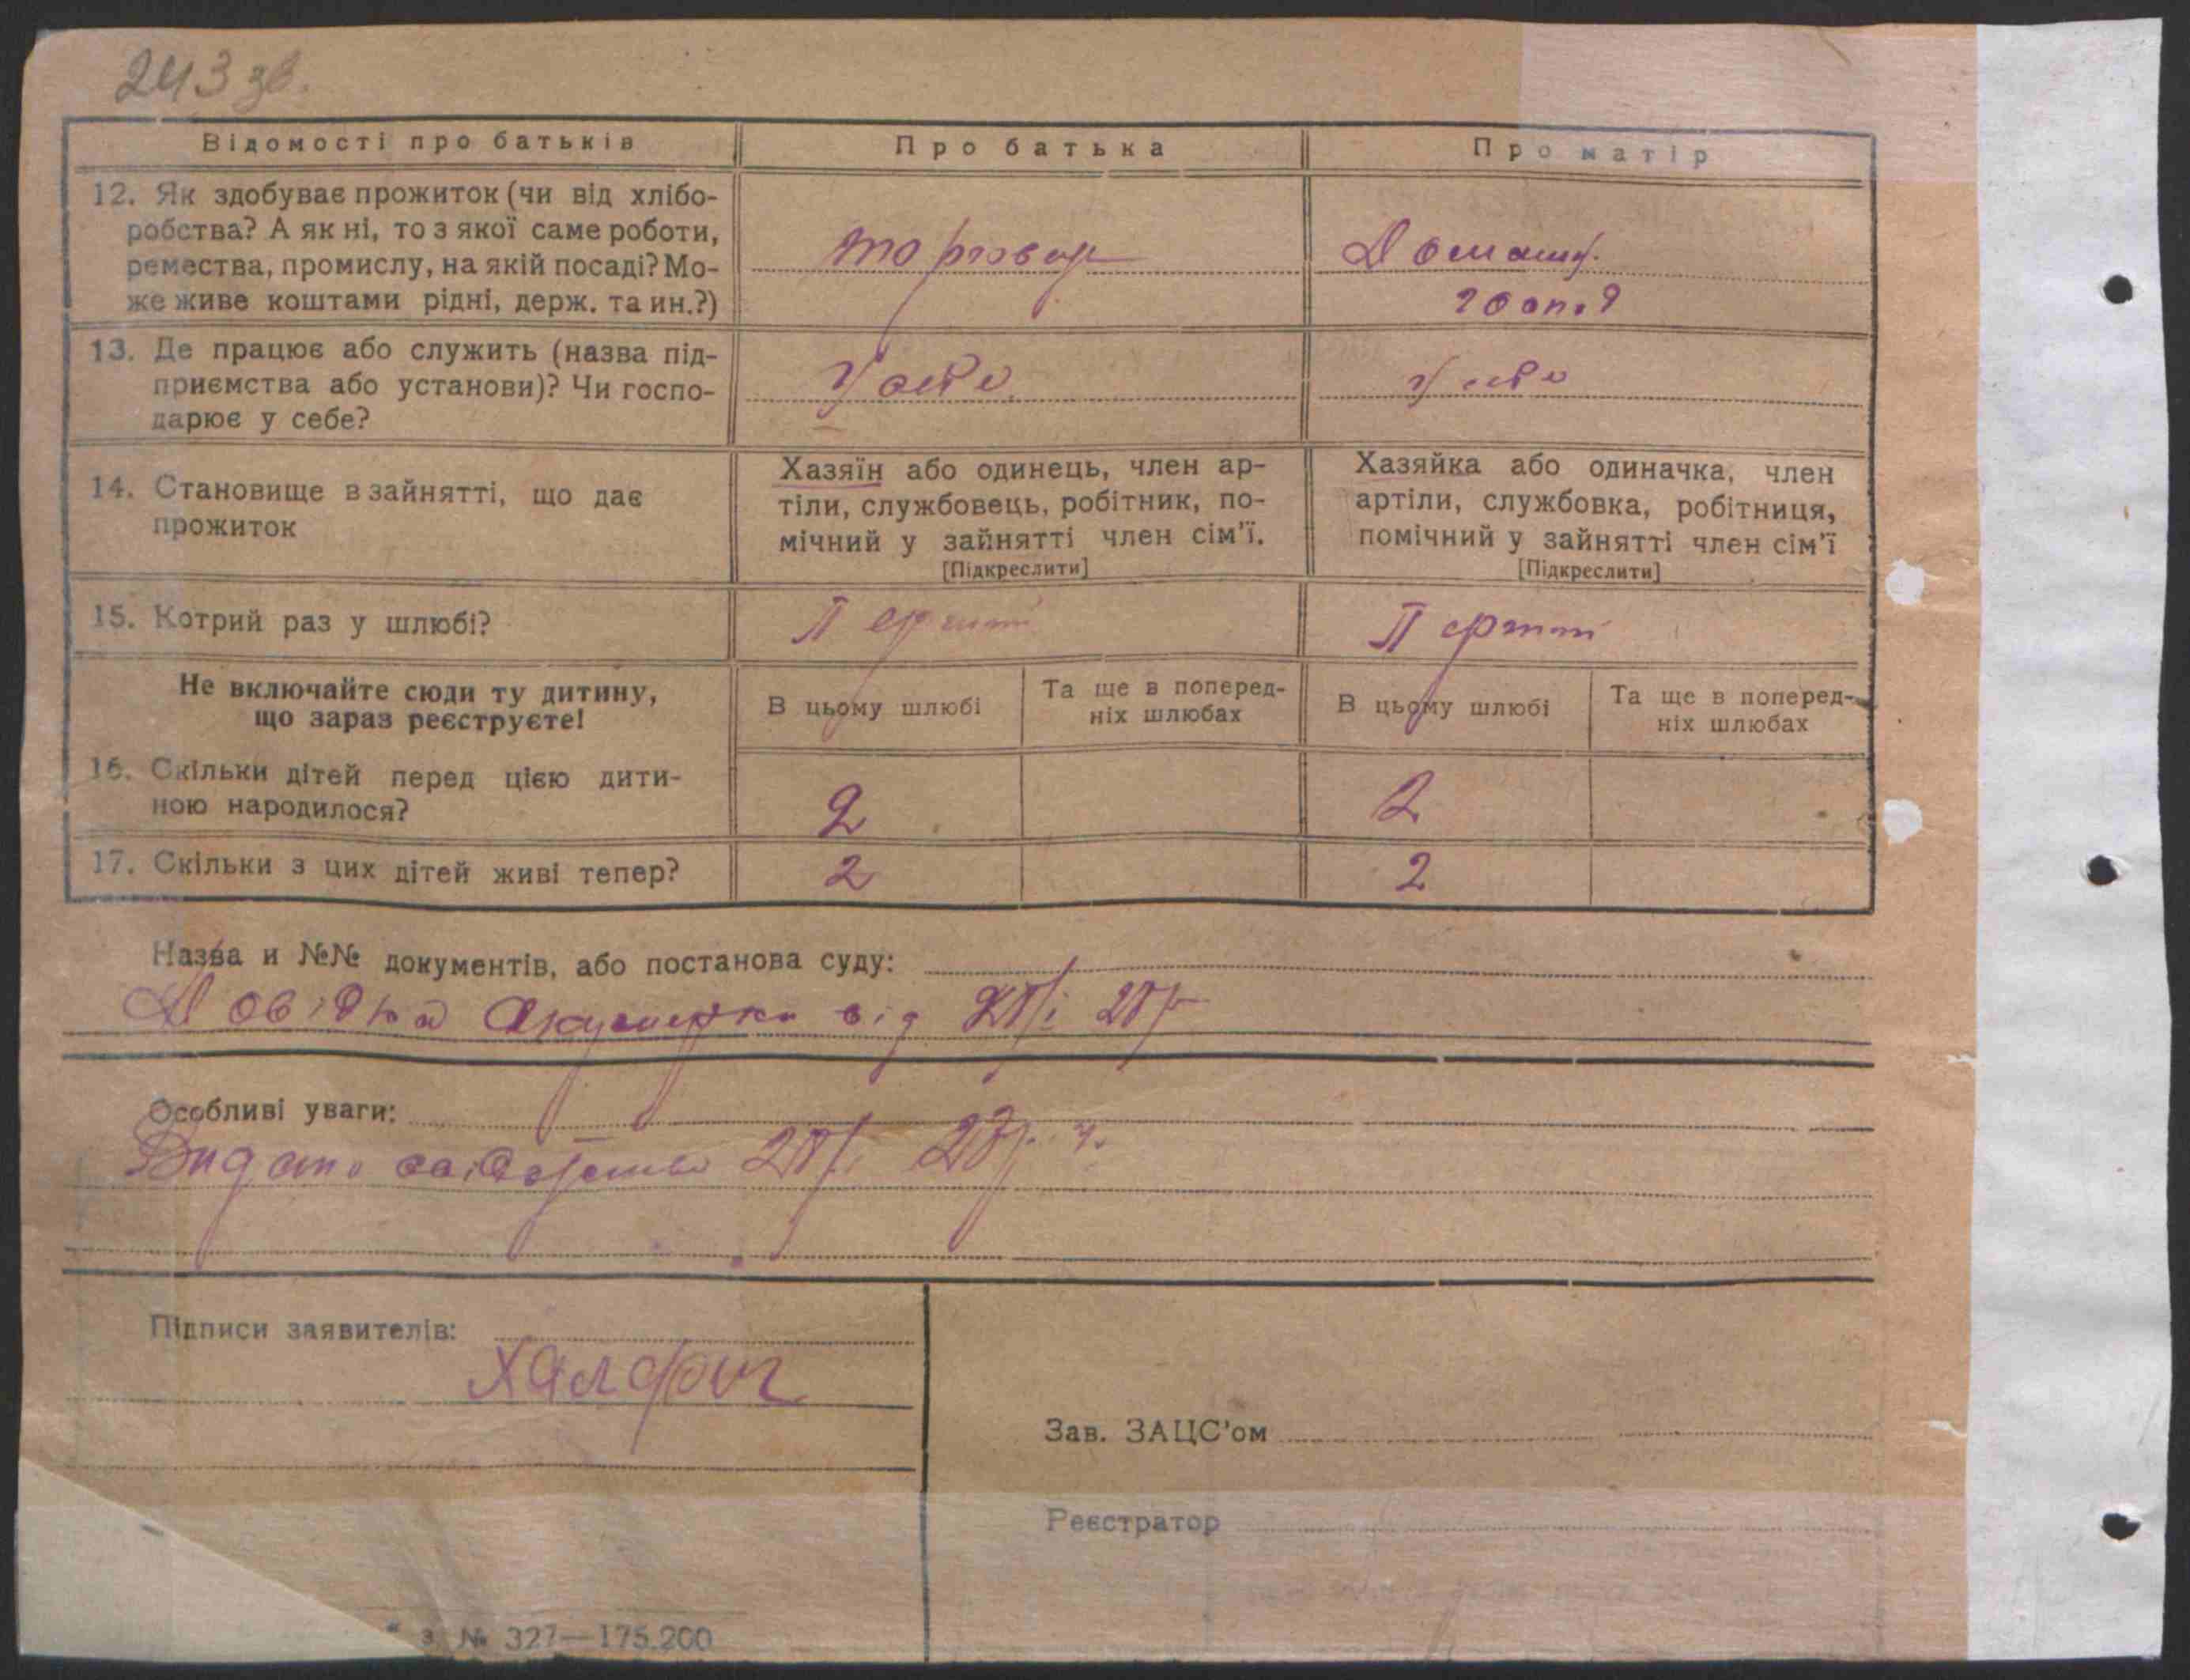 243 зв.
Відомості про батьків
Про батька
Про матір
12. Як здобуває прожиток (чи від хлібо-
робства? А як ні, то з якої саме роботи,
ремества, промислу, на якій посаді? Мо-
же живе коштами рідні, держ. та ин.?)
торговец
Домашн.
госп.
13. Де працює або служить (назва під-
приємства або установи)? Чи госпо-
дарює у себе?
У себе
У себе
14. Становище в зайнятті, що дає
прожиток
Хазяїн або одинець, член ар-
тіли, службовець, робітник, по-
мічний у зайнятті член сім'ї.
[Підкреслити]
Хазяйка або одиначка, член
артіли, службовка, робітниця,
помічний у зайнятті член сім'ї
[Підкреслити]
15. Котрий раз у шлюбі?
Перший
Перший
Не включайте сюди ту дитину,
що зараз реєструєте!
В цьому шлюбі
Та ще в поперед-
ніх шлюбах
В цьому шлюбі
Та ще в поперед-
ніх шлюбах
16. Скільки дітей перед цією дити-
ною народилося?
2
2
17. Скільки з цих дітей живі тепер?
2
2
Назва и №№ документів, або постанова суду:
Довідка Акушерки від
Особливі уваги:
Видано свідоцтво
Підписи заявителів:
Халфин
Зав. ЗАЦС'ом
Реєстратор
з № 327—175.200